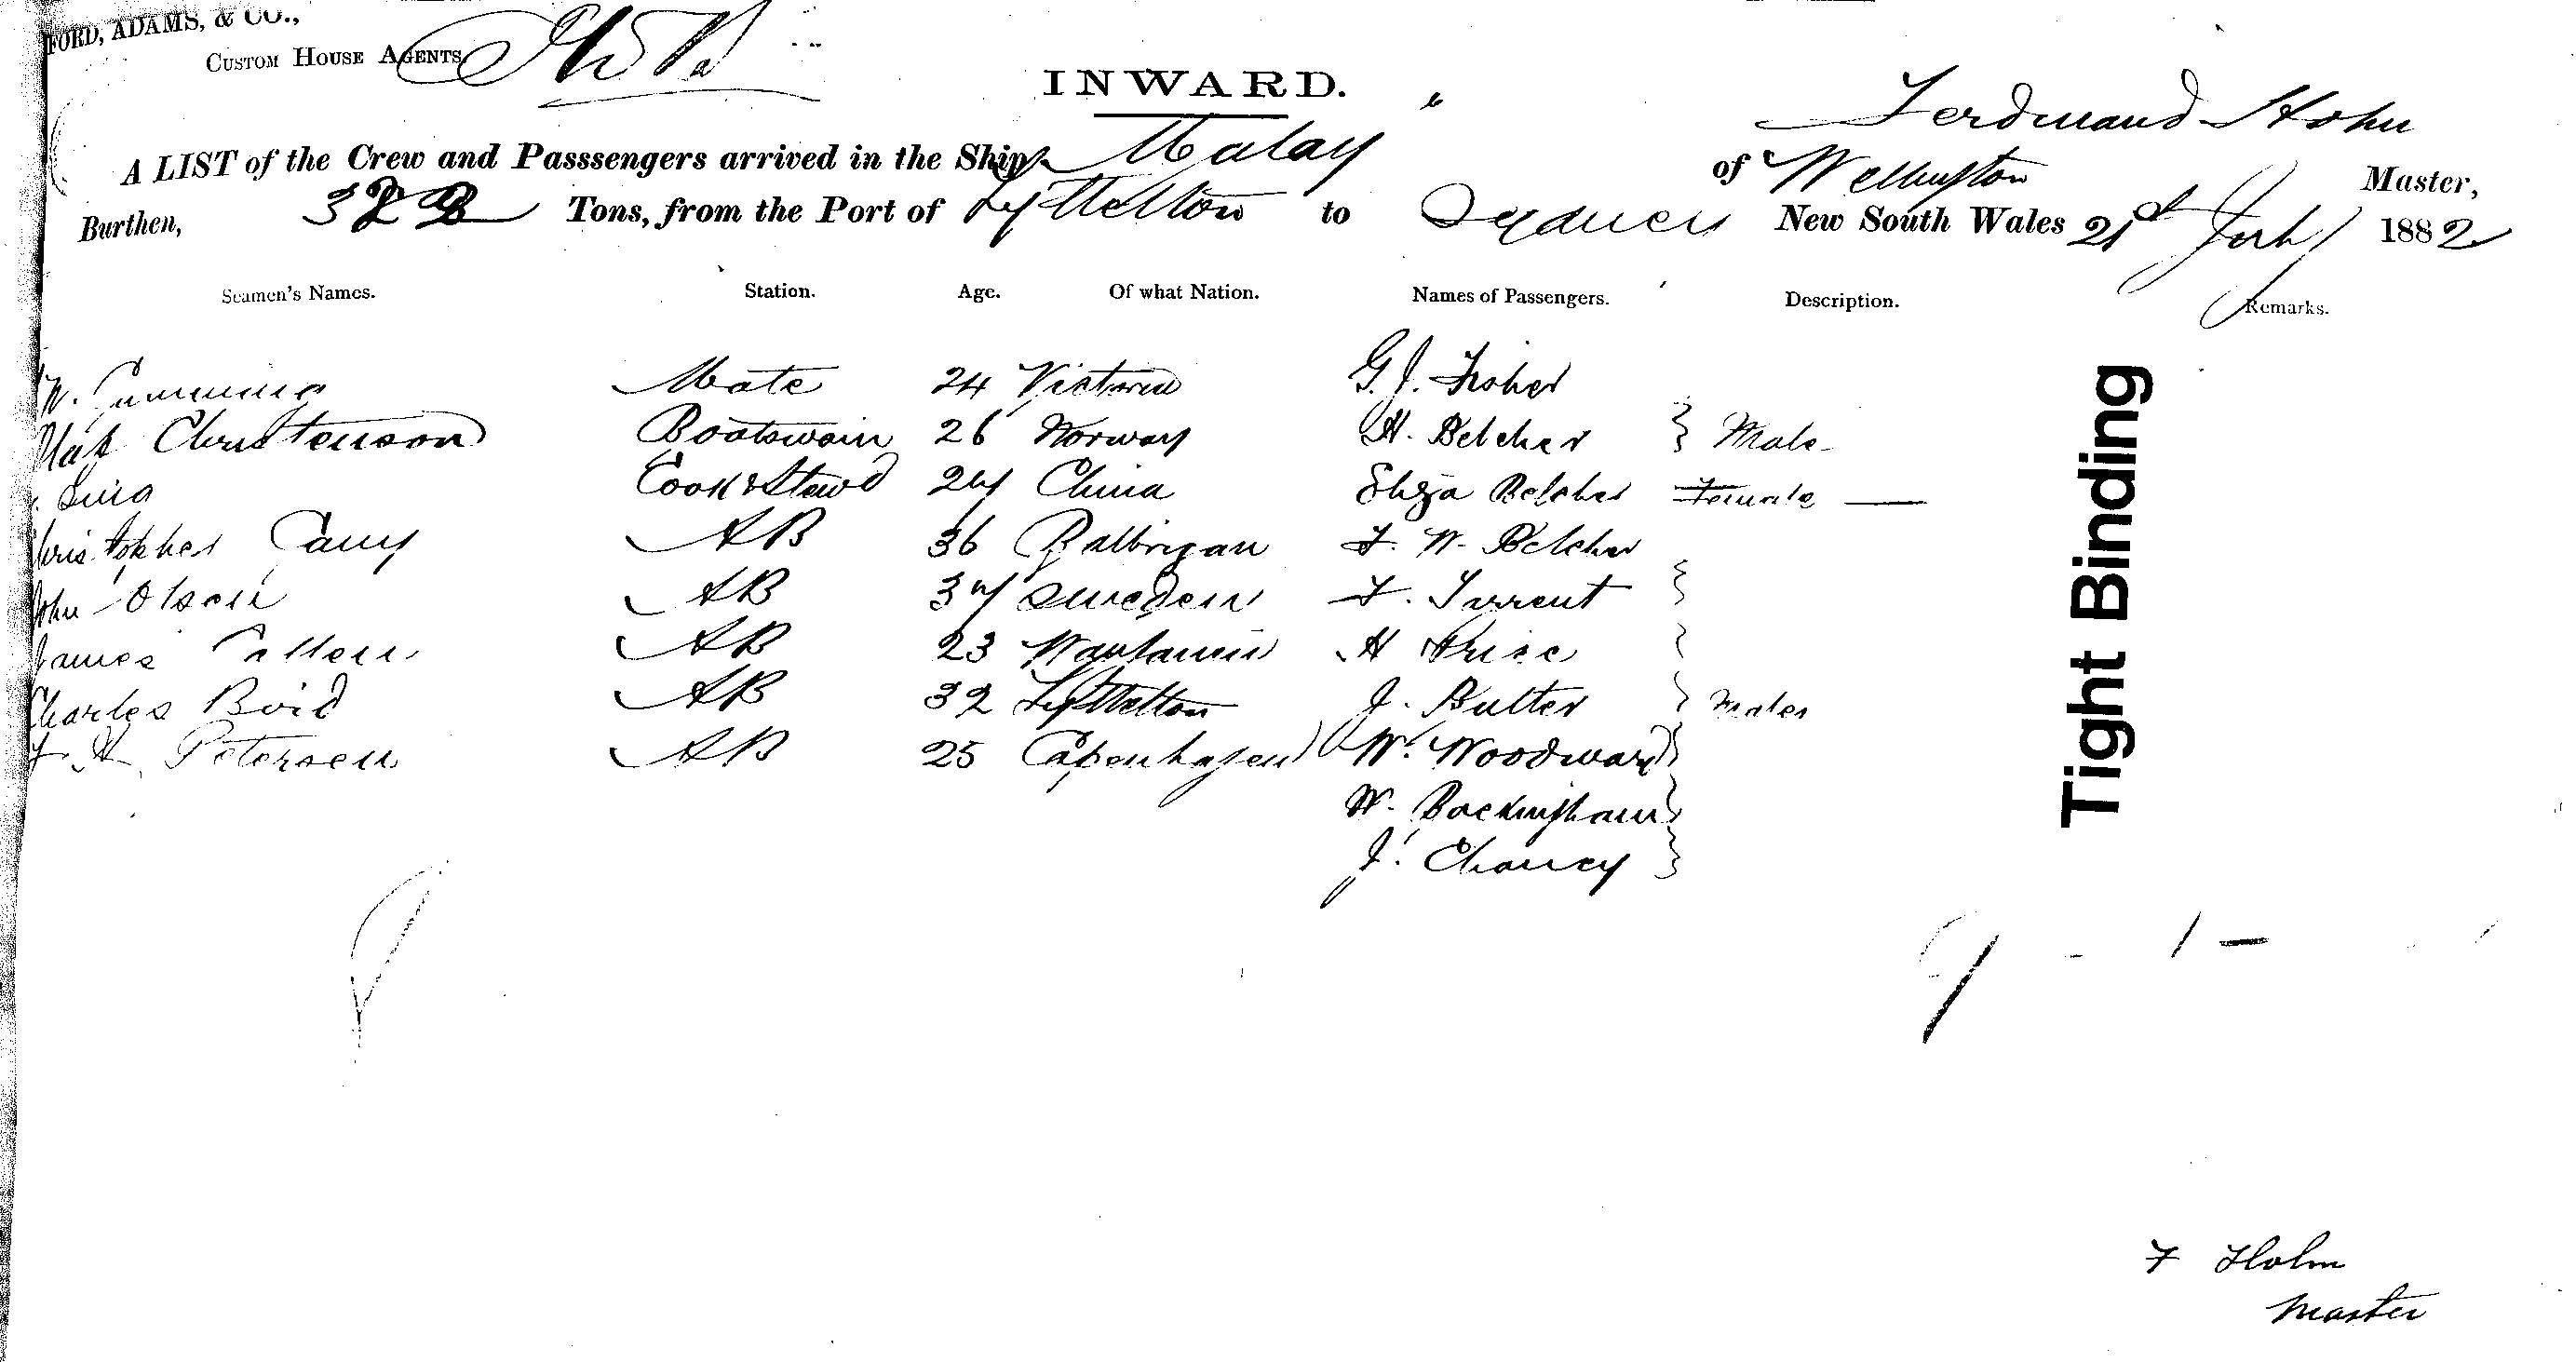 FORD, ADAMS, & CO.,
CUSTOM HOUSE AGENTS
INWARD.
A LIST of the Crew and Passsengers arrived in the Ship Malay of Wellington Ferdinand Holm Master,
Burthen, Tons, from the Port of Lyttelton to Sydney New South Wales 21st 1882
Seamen's Names. Station. Age. Of what Nation. Names of Passengers. Description. Remarks.
W. Cumming Mate 24 Victoria G. J. Fisher
Christenson Boatswain 26 Norway H. Belcher } Male
Cook & Stewd 24 China Eliza Belcher Female —
Christopher AB 36 Balbrigan F. W. Belcher
John Olsen AB 34 Sweden F. Turrent }
James AB 23 H }
Charles Boid AB 32 Lyttelton J. Butter } Males
F. H. Petersen AB 25 Copenhagen W. Woodward }
W. Buckingham }
J. Chancy }
Tight Binding
F Holm
Master